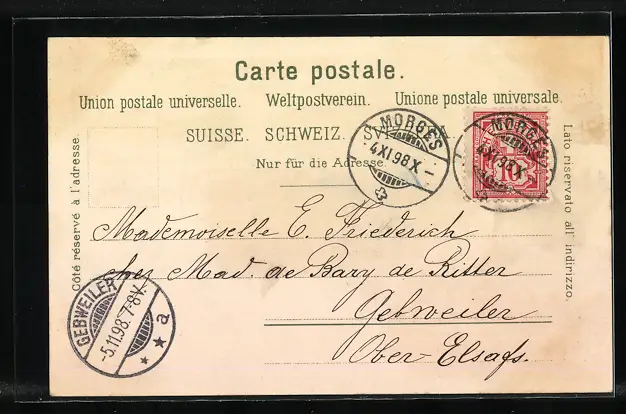 Carte postale.
Union postale universelle. Weltpostverein. Unione postale universale.
SUISSE. SCHWEIZ.
Nur für die Adresse.
Côté réservé à l'adresse.
Lato riservato all' indirizzo.
MORGES
4 XI 98 X –
MORGES
4 XI 98 X
10
Mademoiselle E. Friederich
chez Mad. de Bary de Ritter
Gebweiler
Ober-Elsaſs.
GEBWEILER
-5.11.98. 7-8V.
* * a